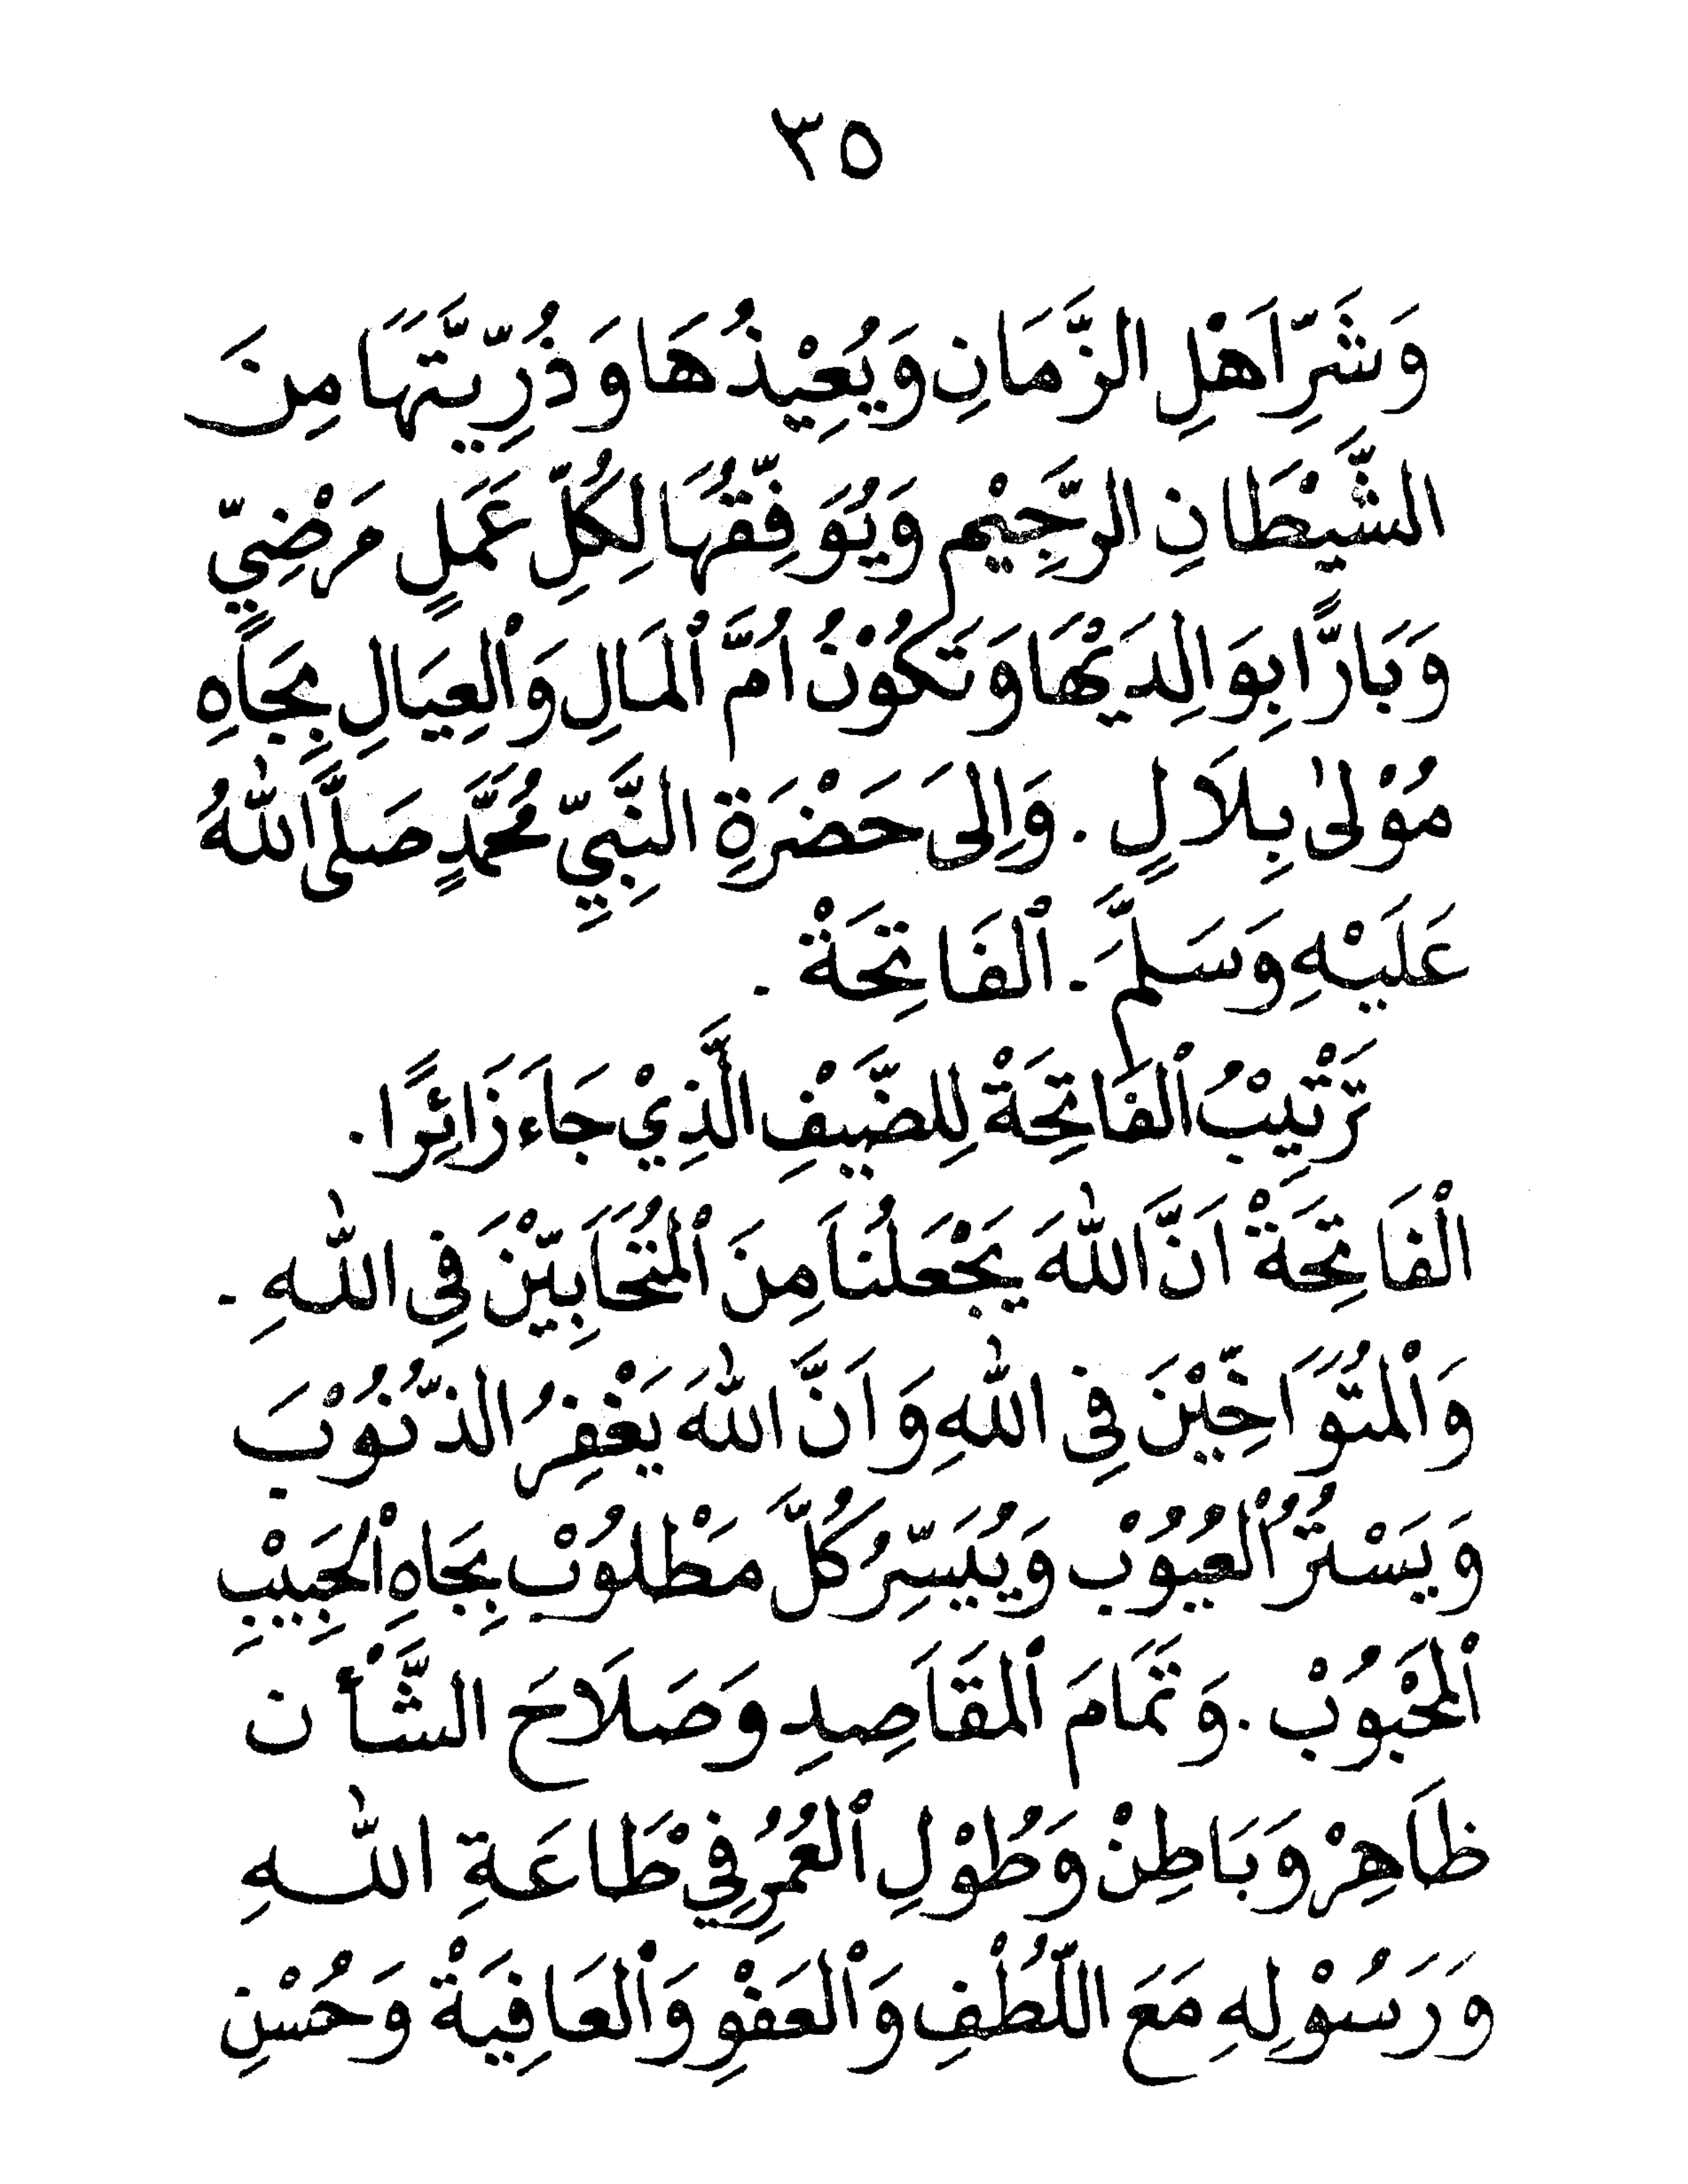 ٣٥
وَشَرِّ اَهْلِ الزَّمَانِ وَيُعِيْذُهَا وَذُرِّيَّتَهَا مِنَ
الشَّيْطَانِ الرَّجِيْمِ وَيُوَفِّقُهَا لِكُلِّ عَمَلٍ مَرْضِيٍّ
وَبَارًّا بِوَالِدَيْهَا وَتَكُوْنُ اُمَّ اْلمَالِ وَاْلعِيَالِ بِجَاهِ
مُوْلىٰ بِلَالٍ . وَاِلىَ حَضْرَةِ النَّبِيِّ مُحَمَّدٍ صَلَّى اللهُ
عَلَيْهِ وَسَلَّمَ . اْلفَاتِحَةْ .
تَرْتِيْبُ اْلفَاتِحَةْ لِلضَّيْفِ الَّذِيْ جَاءَ زَائِرًا .
الْفَاتِحَةْ اَنَّ اللهَ يَجْعَلُنَا مِنَ اْلمُتَحَابِّيْنَ فِى اللهِ .
وَاْلمُتَوَاخِّيْنَ فِى اللهِ وَاَنَّ اللهَ يَغْفِرُ الذُّنُوْبَ
وَيَسْتُرُ اْلعُيُوْبْ وَيُيَسِّرُ كُلَّ مَطْلُوْبْ بِجَاهِ اْلحَبِيْبِ
اْلمَحْبُوْبْ . وَتَمَامَ اْلمَقَاصِدِ وَصَلَاحَ الشَّأْن
ظَاهِرْ وَبَاطِنْ وَطُوْلِ اْلعُمُرِ فِيْ طَاعَةِ اللهِ
وَرَسُوْلِهِ مَعَ اللُّطْفِ وَاْلعَفْوِ وَاْلعَافِيَةْ وَحُسْنِ